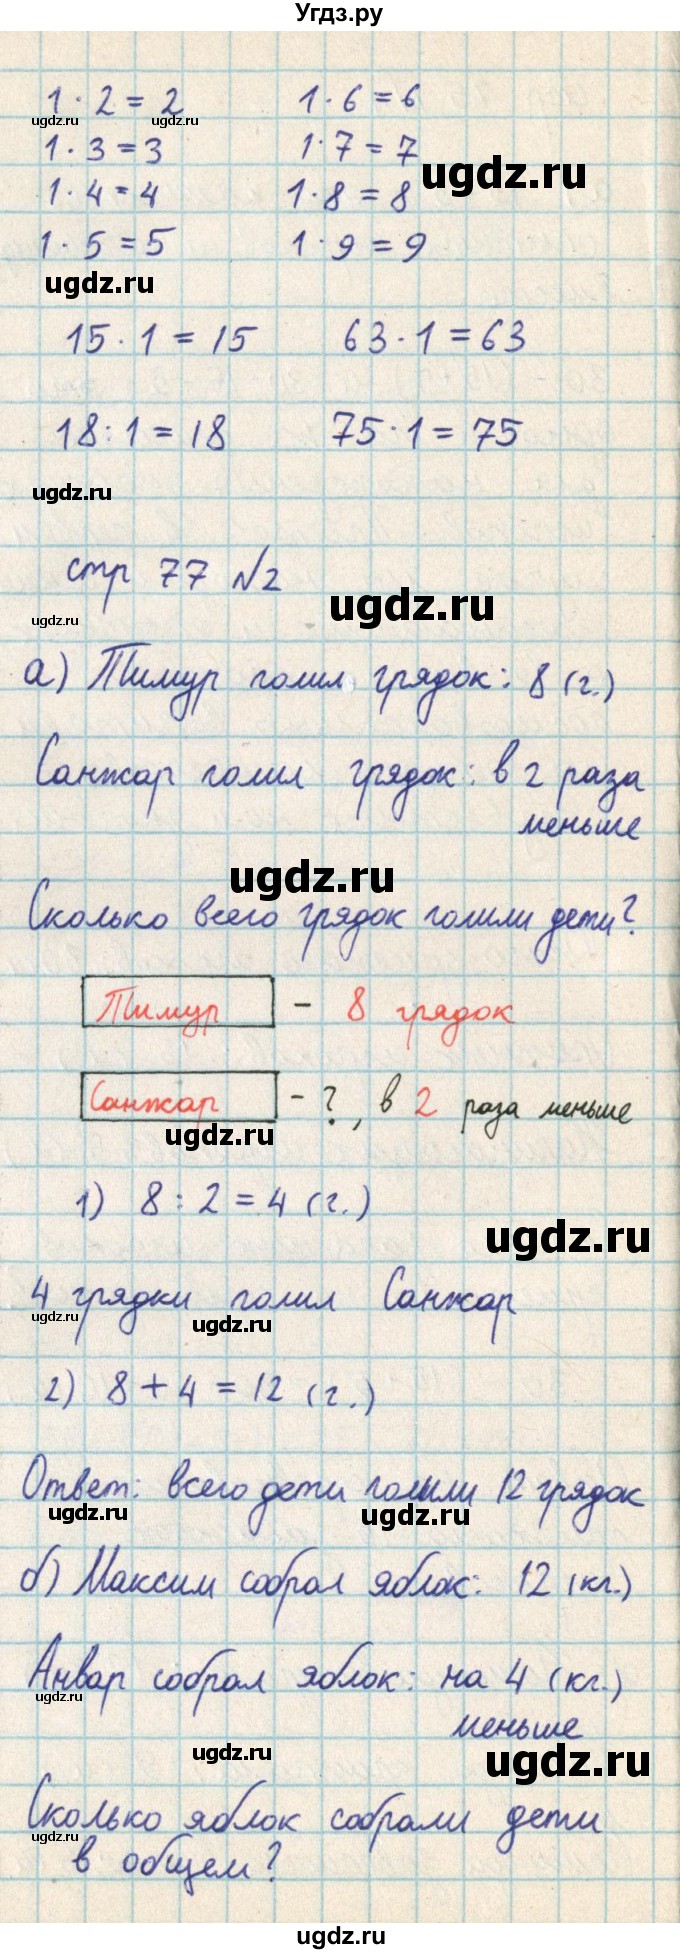 Угдз.ру
1 · 2 = 2 1 · 6 = 6
ugdz.ru ugdz.ru
1 · 3 = 3 1 · 7 = 7
ugdz.ru
1 · 4 = 4 1 · 8 = 8
1 · 5 = 5 1 · 9 = 9
ugdz.ru
15 · 1 = 15 63 · 1 = 63
18 : 1 = 18 75 · 1 = 75
ugdz.ru
стр 77 №2
ugdz.ru
ugdz.ru
а) Тимур полил грядок: 8 (г.)
Санжар полил грядок: в 2 раза
меньше
ugdz.ru
Сколько всего грядок полили дети?
Тимур - 8 грядок
Санжар - ?, в 2 раза меньше
ugdz.ru
1) 8 : 2 = 4 (г.)
ugdz.ru
4 грядки полил Санжар
ugdz.ru ugdz.ru
2) 8 + 4 = 12 (г.)
Ответ: всего дети полили 12 грядок
ugdz.ru ugdz.ru
б) Максим собрал яблок: 12 (кг.)
Анвар собрал яблок: на 4 (кг.)
ugdz.ru
меньше
ugdz.ru ugdz.ru
Сколько яблок собрали дети
ugdz.ru
в общем?
ugdz.ru